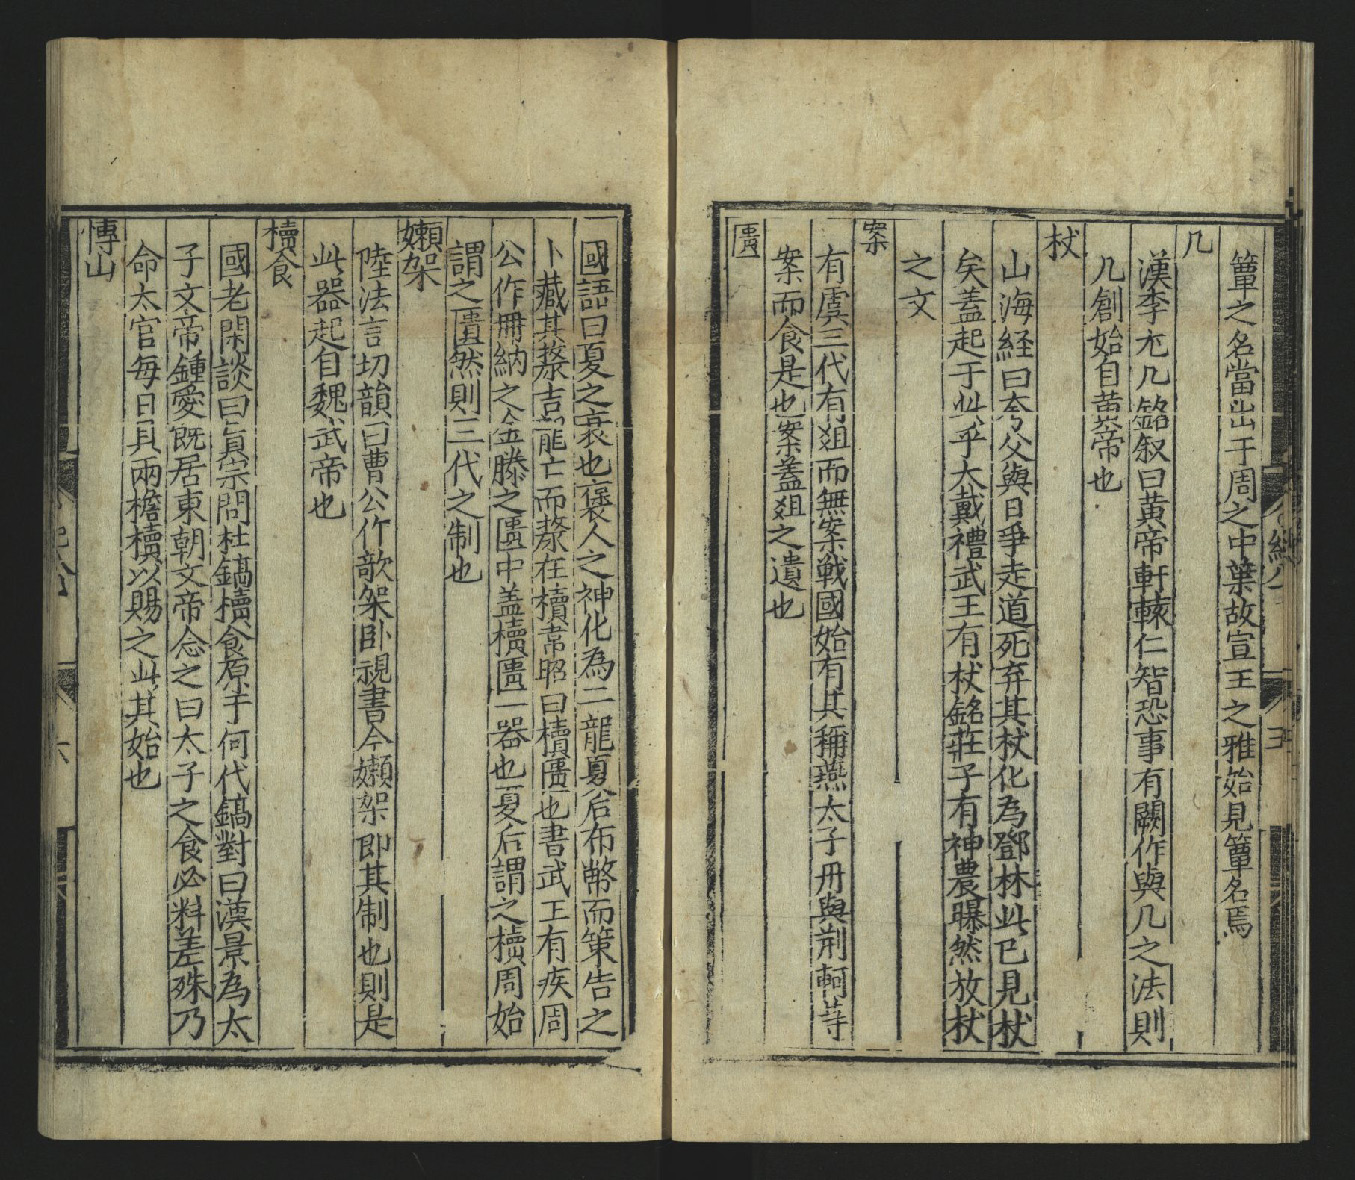 簟之名當出于周之中葉故宣王之雅始見簟名焉
几
漢李尤几銘叙曰黃帝軒轅仁智恐事有闕作與几之法則
几創始自黃帝也
杖
山海経曰夸父與日爭走道死弃其杖化為鄧林此已見杖
矣蓋起于此乎大戴禮武王有杖銘莊子有神農曝然放杖
之文
案
有虞三代有俎而無案戰國始有其稱燕太子丹與荆軻等
案而食是也案蓋俎之遺也
匵
國語曰夏之衰也褒人之神化為二龍夏后布幣而策告之
卜藏其漦吉龍亡而漦在櫝韋昭曰櫝匵也書武王有疾周
公作冊納之金縢之匵中盖櫝匵一器也夏后謂之櫝周始
謂之匵然則三代之制也
嬾架
陸法言切韻曰曹公作欹架卧視書今嬾架即其制也則是
此器起自魏武帝也
櫝食
國老閑談曰真宗問杜鎬櫝食原于何代鎬對曰漢景為太
子文帝鍾愛既居東朝文帝念之曰太子之食必料差殊乃
命太官每日具兩檐櫝以賜之此其始也
博山
六